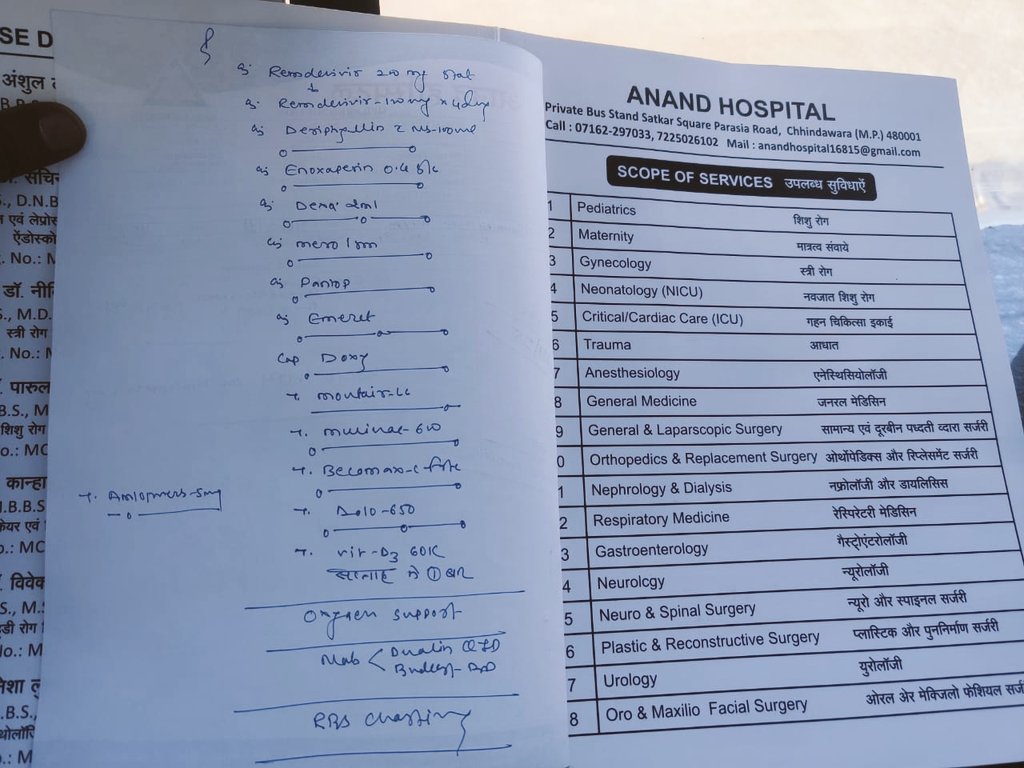 SE D
अंशुल
Inj Remdesivir 200 mg stat
↓
Inj. Remdesivir-100mg x 4days
Inj Deriphyllin 2 NS-100ml
Inj Enoxaperin 0.4 S/c
Inj Dexa 2ml
Inj mero 1gm
Inj Pantop
Inj Emeset
Cap Doxy
T. montair-LC
T. mucinac-600
T. Becomax-c forte
T. Amlopress-5mg
T. Dolo-650
T. vit-D3 60K
सप्ताह में ① बार
Oxygen support
Neb < Duolin QID
Budecort-BD
RBS Charting
ANAND HOSPITAL
Private Bus Stand Satkar Square Parasia Road, Chhindawara (M.P.) 480001
Call : 07162-297033, 7225026102 Mail : anandhospital16815@gmail.com
SCOPE OF SERVICES उपलब्ध सुविधाऐं
1 Pediatrics शिशु रोग
2 Maternity मात्रत्व संवाये
3 Gynecology स्त्री रोग
4 Neonatology (NICU) नवजात शिशु रोग
5 Critical/Cardiac Care (ICU) गहन चिकित्सा इकाई
6 Trauma आधात
7 Anesthesiology एनेस्थिसियोलॉजी
8 General Medicine जनरल मेडिसिन
9 General & Laparscopic Surgery सामान्य एवं दूरबीन पध्दती व्दारा सर्जरी
0 Orthopedics & Replacement Surgery ओर्थोपेडिक्स और रिप्लेसमेंट सर्जरी
1 Nephrology & Dialysis नफ्रोलॉजी और डायलिसिस
2 Respiratory Medicine रेस्पिरेटरी मेडिसिन
3 Gastroenterology गैस्ट्रोएंटरोलॉजी
4 Neurolcgy न्यूरोलॉजी
5 Neuro & Spinal Surgery न्यूरो और स्पाइनल सर्जरी
6 Plastic & Reconstructive Surgery प्लास्टिक और पुननिर्माण सर्जरी
7 Urology युरोलॉजी
8 Oro & Maxilio Facial Surgery ओरल अेर मेक्जिलो फेशियल सर्ज